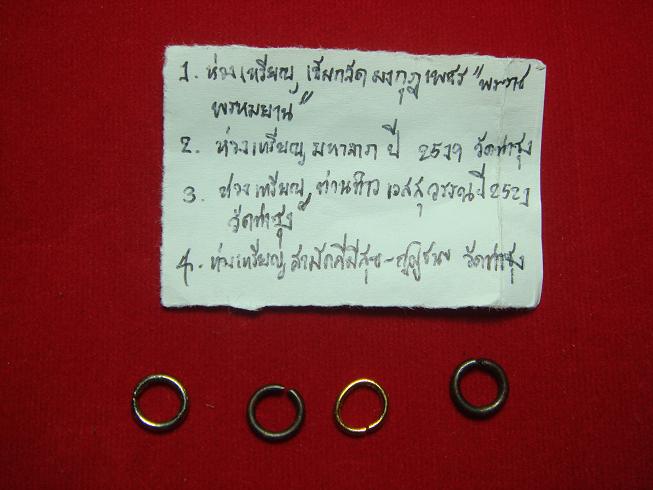 1. ห่วงเหรียญ เข็มกลัด มงกุฎเพชร "พระราช
พรหมยาน"
2. ห่วงเหรียญ มหาลาภ ปี 2519 วัดท่าซุง
3. ห่วงเหรียญ ท่านท้าว เวสสุวรรณ ปี 2521
วัดท่าซุง"
4. ห่วงเหรียญ สามัคคีมีสุข - วัดท่าซุง